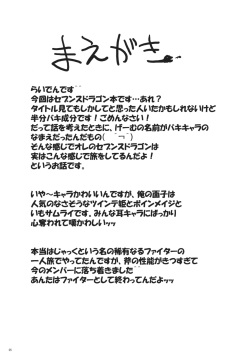 まえがき
らいでんです^^
今回はセブンスドラゴン本です…あれ？
タイトル見てもしかしてと思った人いたかもしれないけど
半分バキ成分です！ごめんなさい！
だって話を考えたときに、げーむの名前がバキキャラの
なまえだったんだもの( ´¬`)
そんな感じでオレのセブンスドラゴンは
実はこんな感じで旅をしてるんだよ！
というお話です。
いや～キャラかわいいんですが、俺の画子は
人気のなさそうなツインテ姫とボインメイジと
いもサムライです、みんな耳キャラにばっかり
心奪われて嘆かわしいッッ
本当はじゃっくという名の稀有なるファイターの
一人旅でやってたんですが、斧の性能がきつすぎて
今のメンバーに落ち着きました^^
あんたはファイターとして終わってんだよッッ